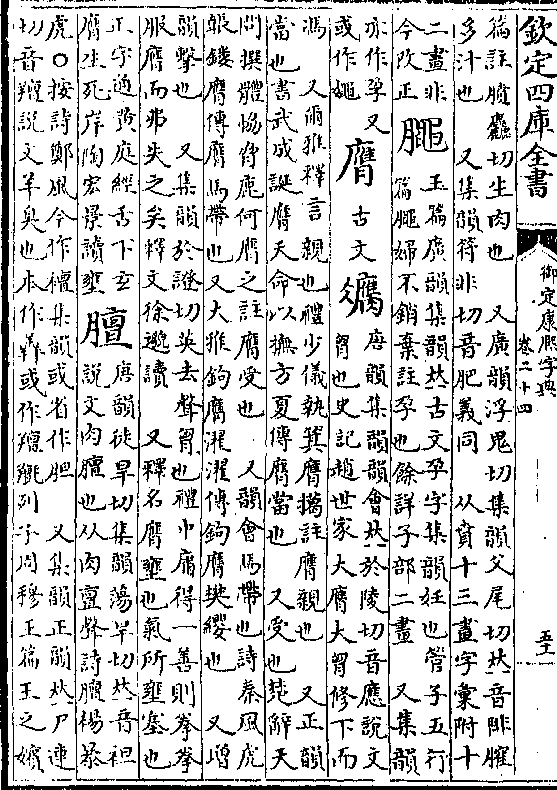 欽定四庫全書
御定康熙字典
卷二十四
五十一
篇註切生肉也 又廣韻浮鬼切集韻父尾切𠀤音陫臛
多汁也 又集韻符非切音肥義同 从賁十三畫字彙附十
二畫非
今改正
玉篇廣韻集韻𠀤古文孕字集韻妊也管子五行
篇婦不銷棄註孕也餘詳子部二畫 又集韻
亦作孕 又
或作
膺 古文
唐韻集韻韻會𠀤於陵切音應說文
胷也史記趙世家大膺大胷修下而
馮 又爾雅釋言親也禮少儀執箕膺擖註膺親也 又正韻
當也書武成誕膺天命以撫方夏傳膺當也 又受也楚辭天
問撰體恊脅鹿何膺之註膺受也 又韻會馬帶也詩秦風虎
韔鏤膺傳膺馬帶也 又大雅鉤膺濯濯傳鉤膺樊纓也 又增
韻擊也 又集韻於證切英去聲胷也禮中庸得一善則拳拳
服膺而弗失之矣釋文徐邈讀 又釋名膺壅也氣所壅塞也
正字通黄庭經舌下玄
膺生死岸陶宏景讀壅
膻
唐韻徒旱切集韻蕩旱切𠀤音袒
說文肉膻也从肉亶聲詩膻裼暴
虎○按詩鄭風今作襢集韻或省作胆 又集韻正韻𠀤尸連
切音羶說文羊臭也本作羴或作羶列子周穆王篇王之嬪